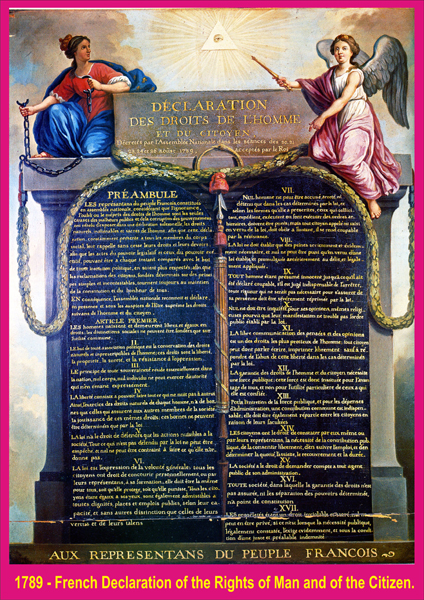 DÉCLARATION
DES DROITS DE L'HOMME
ET DU CITOYEN,
Décretés par l'Assemblée Nationale dans les séances des 20, 21
23, 24 et 26 août 1789, acceptés par le Roi
PRÉAMBULE
LES représentans du peuple François, constitués
en assemblée nationale, considérant que l'ignorance,
l'oubli ou le mépris des droits de l'homme sont les seules
causes des malheurs publics et de la corruption des gouvernemens
ont résolu d'exposer dans une déclaration solemnelle, les droits
naturels, inaliénables et sacrés de l'homme; afin que cette déclaration,
constamment présente à tous les membres du corps
social, leur rappelle sans cesse leurs droits et leurs devoirs;
afin que les actes du pouvoir législatif et ceux du pouvoir exécutif,
pouvant être à chaque instant comparés avec le but
de toute institution politique, en soient plus respectés; afin que
les réclamations des citoyens, fondées désormais sur des principes
simples et incontestables, tournent toujours au maintien
de la constitution et du bonheur de tous.
EN conséquence, l'assemblée nationale reconnoit et déclare,
en présence et sous les auspices de l'Être suprême, les droits
suivans de l'homme et du citoyen.
ARTICLE PREMIER.
LES hommes naissent et demeurent libres et égaux en
droits; les distinctions sociales ne peuvent être fondées que sur
l'utilité commune.
II.
LE but de toute association politique est la conservation des droits
naturels et imprescriptibles de l'homme; ces droits sont la liberté,
la propriété, la sûreté, et la résistance à l'oppression.
III.
LE principe de toute souveraineté réside essentiellement dans
la nation, nul corps, nul individu ne peut exercer d'autorité
qui n'en émane expressément.
IV.
LA liberté consiste à pouvoir faire tout ce qui ne nuit pas à autrui.
Ainsi, l'exercice des droits naturels de chaque homme, n'a de bornes
que celles qui assurent aux autres membres de la société
la jouissance de ces mêmes droits; ces bornes ne peuvent
être déterminées que par la loi.
V.
LA loi n'a le droit de défendre que les actions nuisibles à la
société. Tout ce qui n'est pas défendu par la loi ne peut être
empêché, et nul ne peut être contraint à faire ce qu'elle n'ordonne
pas.
VI.
LA loi est l'expression de la volonté générale; tous les
citoyens ont droit de concourir personnellement, ou par
leurs représentans, à sa formation; elle doit être la même
pour tous, soit qu'elle protege, soit qu'elle punisse. Tous les citoyens
étant égaux à ses yeux, sont également admissibles à
toutes dignités, places et emplois publics, selon leur capacité,
et sans autres distinction que celles de leurs
vertus et de leurs talens.
VII.
NUL homme ne peut être accusé, arrêté, ni
détenu que dans les cas déterminés par la loi, et
selon les formes qu'elle a prescrites, ceux qui sollicitent,
expédient, exécutent ou font exécuter des ordres arbitraires,
doivent être punis; mais tout citoyen appelé ou saisi
en vertu de la loi, doit obéir à l'instant, il se rend coupable
par la résistance.
VIII.
LA loi ne doit établir que des peines strictement et évidemment
nécessaire, et nul ne peut être puni qu'en vertu d'une
loi établie et promulguée antérieurement au délit, et légalement
appliquée.
IX.
TOUT homme étant présumé innocent jusqu'à ce qu'il ait
été déclaré coupable, s'il est jugé indispensable de l'arrêter,
toute rigueur qui ne serait pas nécessaire pour s'assurer de
sa personne doit être sévèrement réprimée par la loi.
X.
NUL ne doit être inquiété pour ses opinions, mêmes religieuses
pourvu que leur manifestation ne trouble pas l'ordre
public établi par la loi.
XI.
LA libre communication des pensées et des opinions
est un des droits les plus precieux de l'homme: tout citoyen
peut donc parler, écrire, imprimer librement; sauf à répondre
de l'abus de cette liberté dans les cas déterminés
par la loi.
XII.
LA garantie des droits de l'homme et du citoyen nécessite
une force publique; cette force est donc instituée pour l'avantage
de tous, et non pour l'utilité particuliere de ceux à qui
elle est confiée.
XIII.
POUR l'entretien de la force publique, et pour les dépenses
d'administration, une contribution commune est indispensable;
elle doit être également répartie entre les citoyens en
raison de leurs facultés.
XIV.
LES citoyens ont le droit de constater par eux même ou
par leurs représentans, la nécessité de la contribution publique,
de la consentir librement, d'en suivre l'emploi, et d'en
déterminer la quotité, l'assiette, le recouvrement et la durée.
XV.
LA société a le droit de demander compte à tout agent
public de son administration.
XVI.
TOUTE société, dans laquelle la garantie des droits n'est
pas assurée, ni la séparation des pouvoirs déterminée,
n'a point de constitution.
XVII.
LES propriétés étant un droit inviolable et sacré, nul ne
peut en être privé, si ce n'est lorsque la nécessité publique,
légalement constatée, l'exige évidemment, et sous la condition
d'une juste et préalable indemnité.
AUX REPRESENTANS DU PEUPLE FRANCOIS
1789 - French Declaration of the Rights of Man and of the Citizen.